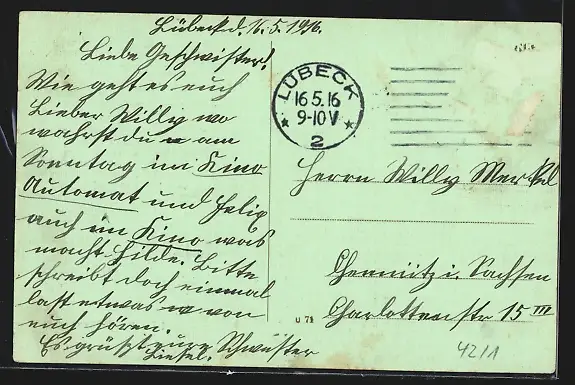 Lübeck d. 16.5.1916.
Liebe Geschwister!
Wie geht es euch
Lieber Willy wo
wahrst du am
Sonntag im Kino
Automat und Felix
auch im Kino was
macht Hilde. Bitte
schreibt doch einmal
last etwas von
euch hören.
Es grüsst eure Schwester
Liesel.
LÜBECK
16.5.16
9-10V
* 2 *
Herrn Willy Merkel
Chemnitz i. Sachsen
Charlottenstr 15 III
u 71
42/1